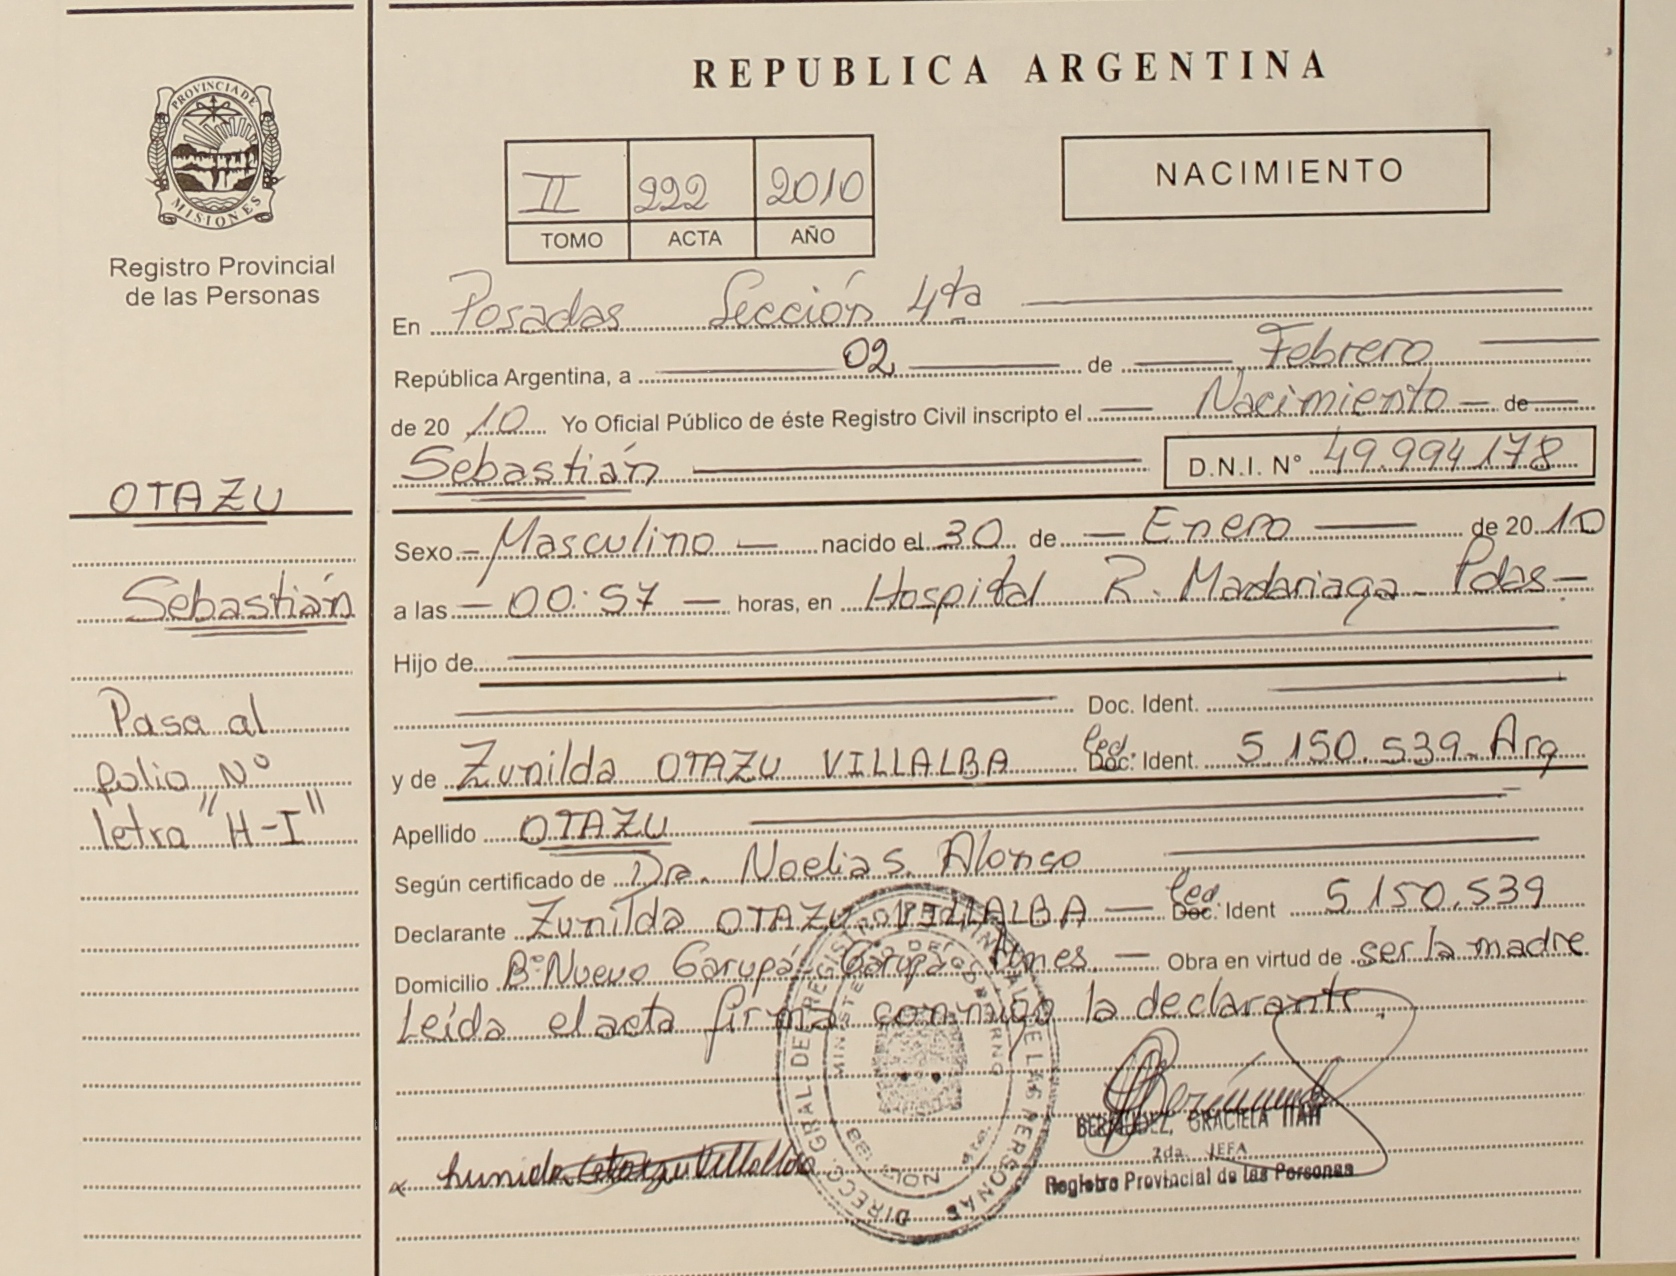 PROVINCIA DE
MISIONES
Registro Provincial
de las Personas
OTAZU
Sebastián
Pasa al
folio Nº
letra "H-I"
REPUBLICA ARGENTINA
II 222 2010
TOMO ACTA AÑO
NACIMIENTO
En Posadas Sección 4ta
República Argentina, a 02 de Febrero
de 2010 Yo Oficial Público de éste Registro Civil inscripto el Nacimiento de
Sebastián D.N.I. N° 49.994.178
Sexo Masculino nacido el 30 de Enero de 2010
a las 00:57 horas, en Hospital R. Madariaga - Pdas
Hijo de
Doc. Ident.
y de Zunilda OTAZU VILLALBA Ced. Doc. Ident. 5.150.539- Arg
Apellido OTAZU
Según certificado de Dra. Noelia S. Alonso
Declarante Zunilda OTAZU VILLALBA Ced. Doc. Ident 5.150.539
Domicilio B° Nuevo Garupá - Garupá - Mnes. Obra en virtud de ser la madre
Leída el acta firma conmigo la declarante.
DIRECC. GRAL. DEL REGISTRO PROVINCIAL DE LAS PERSONAS
MINISTERIO DEL GOBIERNO
BERMUDEZ, GRACIELA
2da. JEFA
Registro Provincial de las Personas